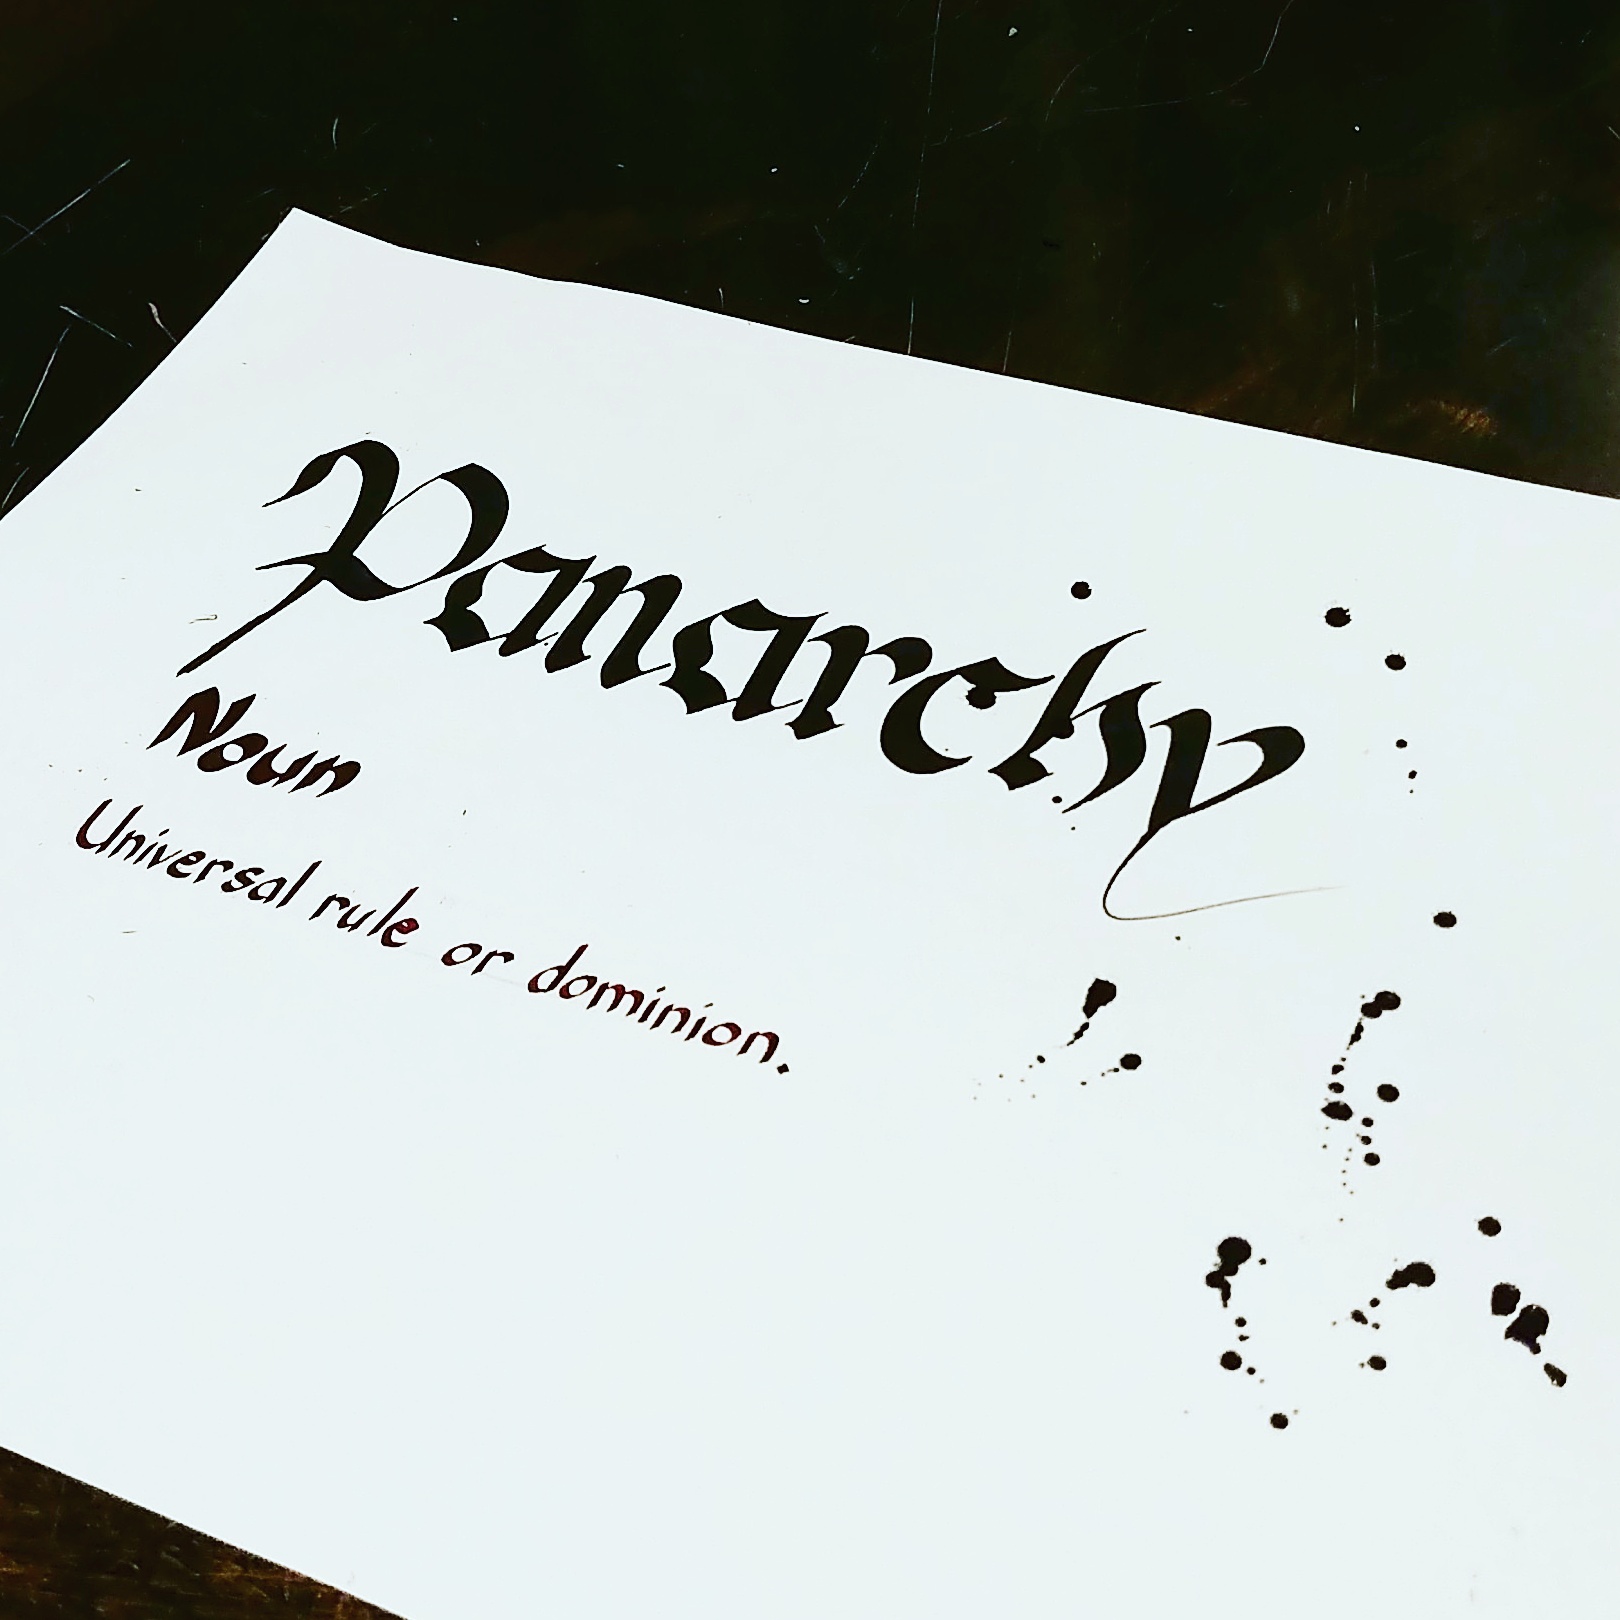 Panarchy
Noun
Universal rule or dominion.